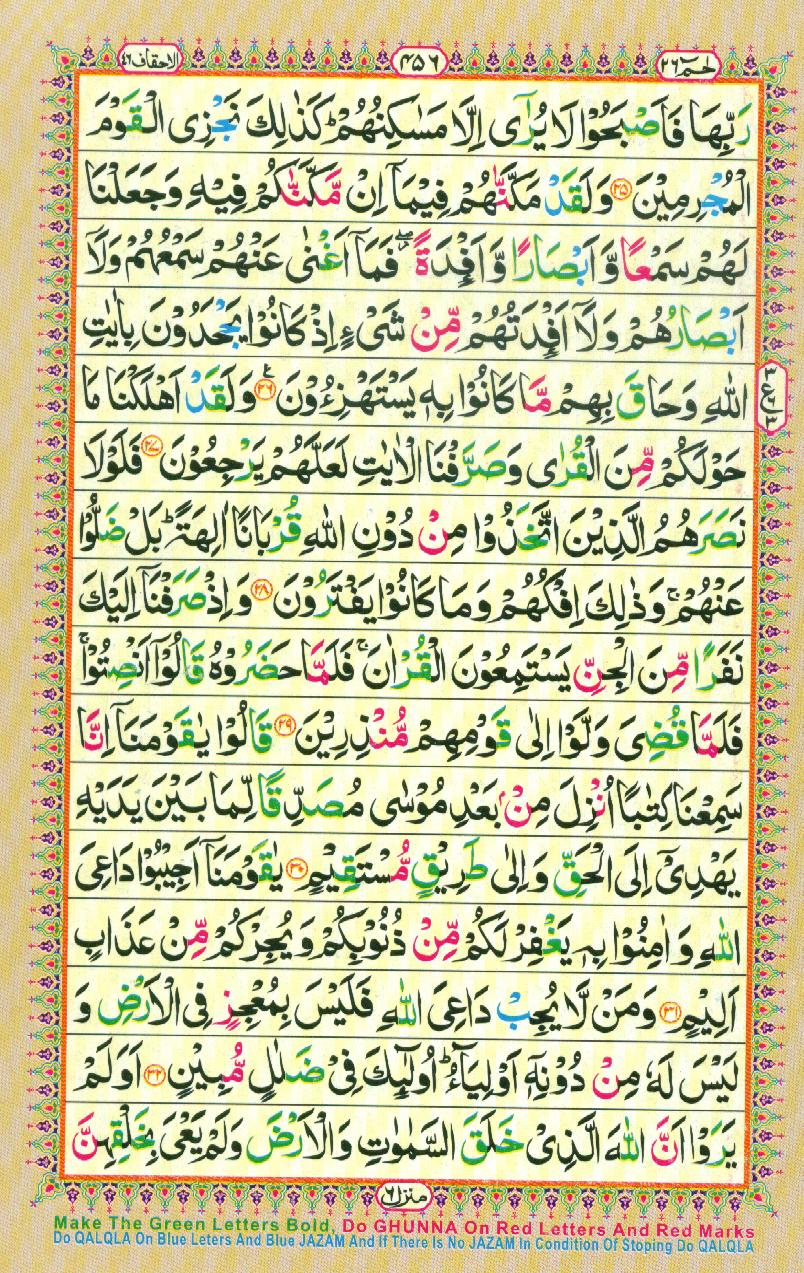 الاحقاف ٤٦
٤٥٦
حٰمٓ ٢٦
رَبِّهَا فَاَصْبَحُوْا لَا يُرٰۤى اِلَّا مَسٰكِنُهُمْ ؕ كَذٰلِكَ نَجْزِى الْقَوْمَ
الْمُجْرِمِيْنَ ﴿٢٥﴾ وَلَقَدْ مَكَّنّٰهُمْ فِيْمَاۤ اِنْ مَّكَّنّٰكُمْ فِيْهِ وَجَعَلْنَا
لَهُمْ سَمْعًا وَّ اَبْصَارًا وَّ اَفْـِٕدَةً ۖ فَمَاۤ اَغْنٰى عَنْهُمْ سَمْعُهُمْ وَلَاۤ
اَبْصَارُهُمْ وَلَاۤ اَفْـِٕدَتُهُمْ مِّنْ شَىْءٍ اِذْ كَانُوْا يَجْحَدُوْنَ بِاٰيٰتِ
اللّٰهِ وَحَاقَ بِهِمْ مَّا كَانُوْا بِهٖ يَسْتَهْزِءُوْنَ ﴿٢٦﴾ وَلَقَدْ اَهْلَكْنَا مَا
حَوْلَكُمْ مِّنَ الْقُرٰى وَصَرَّفْنَا الْاٰيٰتِ لَعَلَّهُمْ يَرْجِعُوْنَ ﴿٢٧﴾ فَلَوْلَا
نَصَرَهُمُ الَّذِيْنَ اتَّخَذُوْا مِنْ دُوْنِ اللّٰهِ قُرْبَانًا اٰلِهَةً ؕ بَلْ ضَلُّوْا
عَنْهُمْ ۚ وَذٰلِكَ اِفْكُهُمْ وَمَا كَانُوْا يَفْتَرُوْنَ ﴿٢٨﴾ وَاِذْ صَرَفْنَاۤ اِلَيْكَ
نَفَرًا مِّنَ الْجِنِّ يَسْتَمِعُوْنَ الْقُرْاٰنَ ۚ فَلَمَّا حَضَرُوْهُ قَالُوْۤا اَنْصِتُوْا ۚ
فَلَمَّا قُضِىَ وَلَّوْا اِلٰى قَوْمِهِمْ مُّنْذِرِيْنَ ﴿٢٩﴾ قَالُوْا يٰقَوْمَنَاۤ اِنَّا
سَمِعْنَا كِتٰبًا اُنْزِلَ مِنْۢ بَعْدِ مُوْسٰى مُصَدِّقًا لِّمَا بَيْنَ يَدَيْهِ
يَهْدِىْۤ اِلَى الْحَقِّ وَاِلٰى طَرِيْقٍ مُّسْتَقِيْمٍ ﴿٣٠﴾ يٰقَوْمَنَاۤ اَجِيْبُوْا دَاعِىَ
اللّٰهِ وَ اٰمِنُوْا بِهٖ يَغْفِرْ لَكُمْ مِّنْ ذُنُوْبِكُمْ وَيُجِرْكُمْ مِّنْ عَذَابٍ
اَلِيْمٍ ﴿٣١﴾ وَمَنْ لَّا يُجِبْ دَاعِىَ اللّٰهِ فَلَيْسَ بِمُعْجِزٍ فِى الْاَرْضِ وَ
لَيْسَ لَهٗ مِنْ دُوْنِهٖۤ اَوْلِيَآءُ ؕ اُولٰٓئِكَ فِىْ ضَلٰلٍ مُّبِيْنٍ ﴿٣٢﴾ اَوَلَمْ
يَرَوْا اَنَّ اللّٰهَ الَّذِىْ خَلَقَ السَّمٰوٰتِ وَالْاَرْضَ وَلَمْ يَعْىَ بِخَلْقِهِنَّ
منزل ٦
Make The Green Letters Bold, Do GHUNNA On Red Letters And Red Marks
Do QALQLA On Blue Leters And Blue JAZAM And If There Is No JAZAM In Condition Of Stoping Do QALQLA